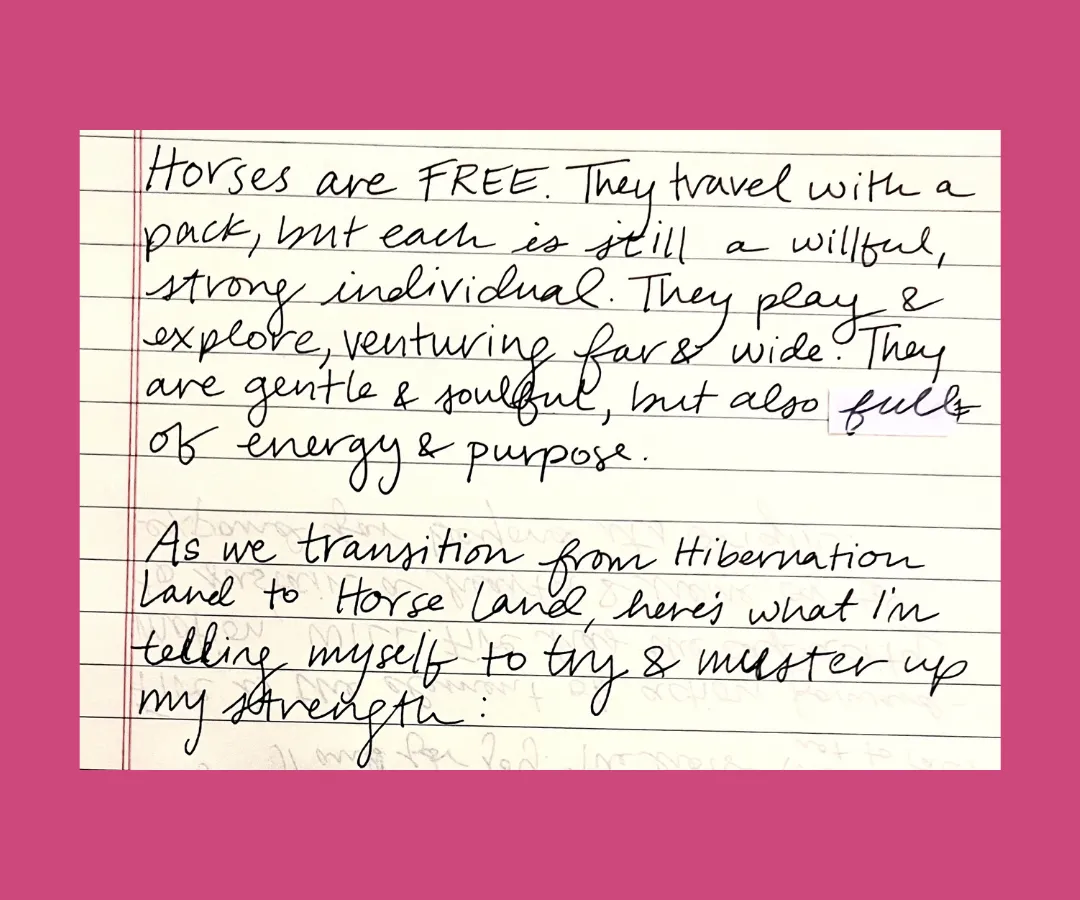 Horses are FREE. They travel with a
pack, but each is still a willful,
strong individual. They play &
explore, venturing far & wide. They
are gentle & soulful, but also full
of energy & purpose.
As we transition from Hibernation
Land to Horse Land, here's what I'm
telling myself to try & muster up
my strength: